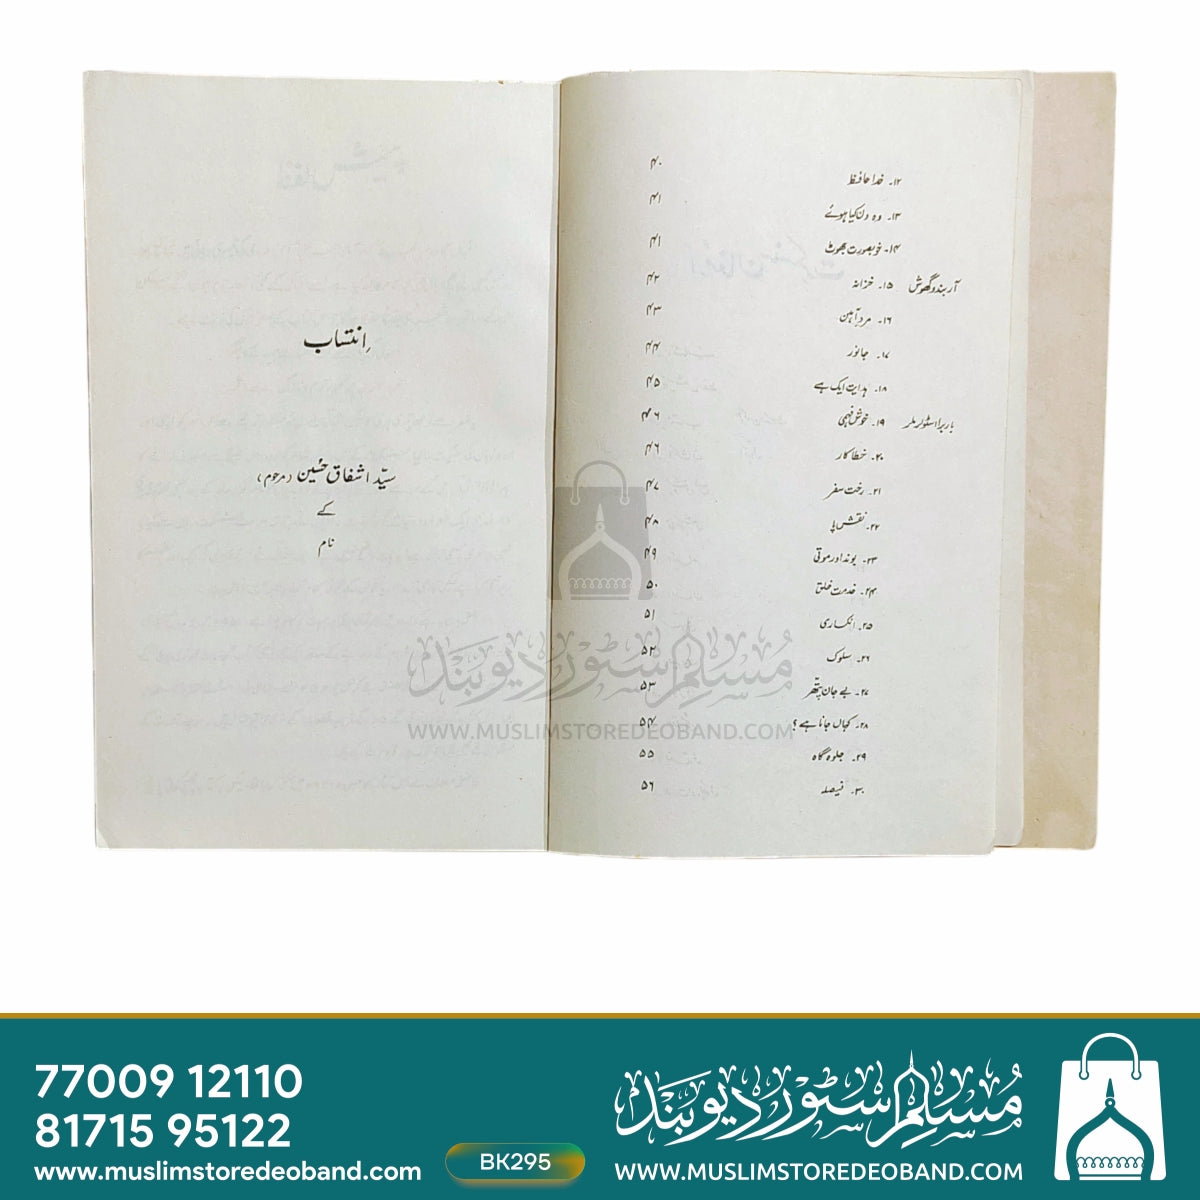 ۴۰
۱۲۔ خدا حافظ
۴۱
۱۳۔ وہ دن کیا ہوئے
۴۱
۱۴۔ خوبصورت جھوٹ
۴۲
آربندو گھوش ۱۵۔ خزانہ
۴۳
۱۶۔ مردِ آہن
۴۴
۱۷۔ جانور
۴۵
۱۸۔ ہدایت ایک ہے
۴۶
باربرا اسٹولر ملر ۱۹۔ خوش فہمی
۴۶
۲۰۔ خطا کار
۴۷
۲۱۔ رخت سفر
۴۸
۲۲۔ نقش پا
۴۹
۲۳۔ بوند اور موتی
۵۰
۲۴۔ خدمت خلق
۵۱
۲۵۔ انکساری
۵۲
۲۶۔ سلوک
۵۳
۲۷۔ بے جان پتّھر
۵۴
۲۸۔ کہاں جانا ہے؟
۵۵
۲۹۔ جلوہ گاہ
۵۶
۳۰۔ فیصلہ
اِنتساب
سیّد اشفاق حُسین (مرحوم)
کے
نام
مسلم سٹور دیوبند
WWW.MUSLIMSTOREDEOBAND.COM
77009 12110
81715 95122
www.muslimstoredeoband.com
BK295
مسلم سٹور دیوبند
WWW.MUSLIMSTOREDEOBAND.COM